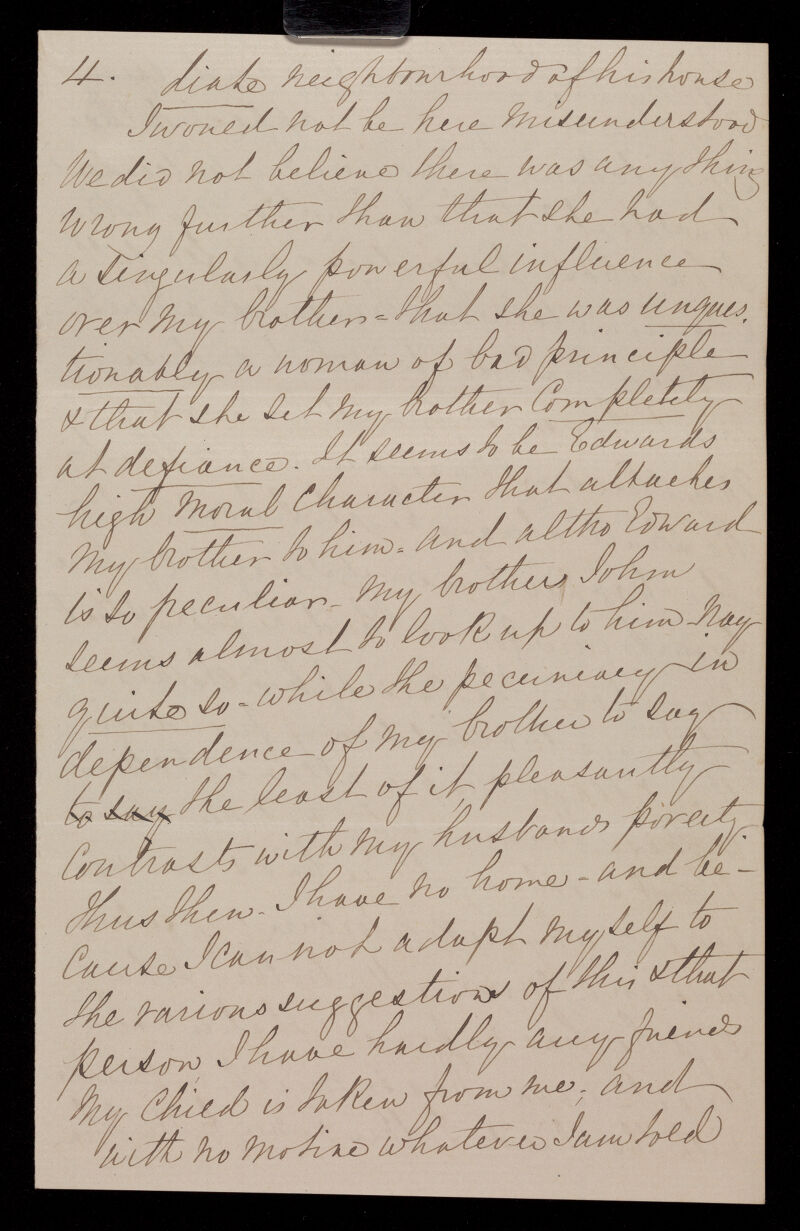 4. diate neighbourhood of his house
I woued not be here misunderstood
We did not believe there was any thing
wrong further than that she had
a singularly powerful influence
over my brother = that she was unques.
tionably a woman of bad principle
& that she set my brother completely
at defiance. It seems to be Edwards
high moral character that attaches
my brother to him - and altho Edward
is so peculiar - my brother John
seems almost to look up to him - nay
quite so - while the pecuniary in
dependence of my brother to say
to say the least of it, pleasantly
contrasts with my husbands poverty.
Thus then - I have no home - and be-
cause I can not adapt myself to
the various suggestions of this & that
person, I have hardly any friends
My Chied is taken from me; and
with no motive whatever I am told